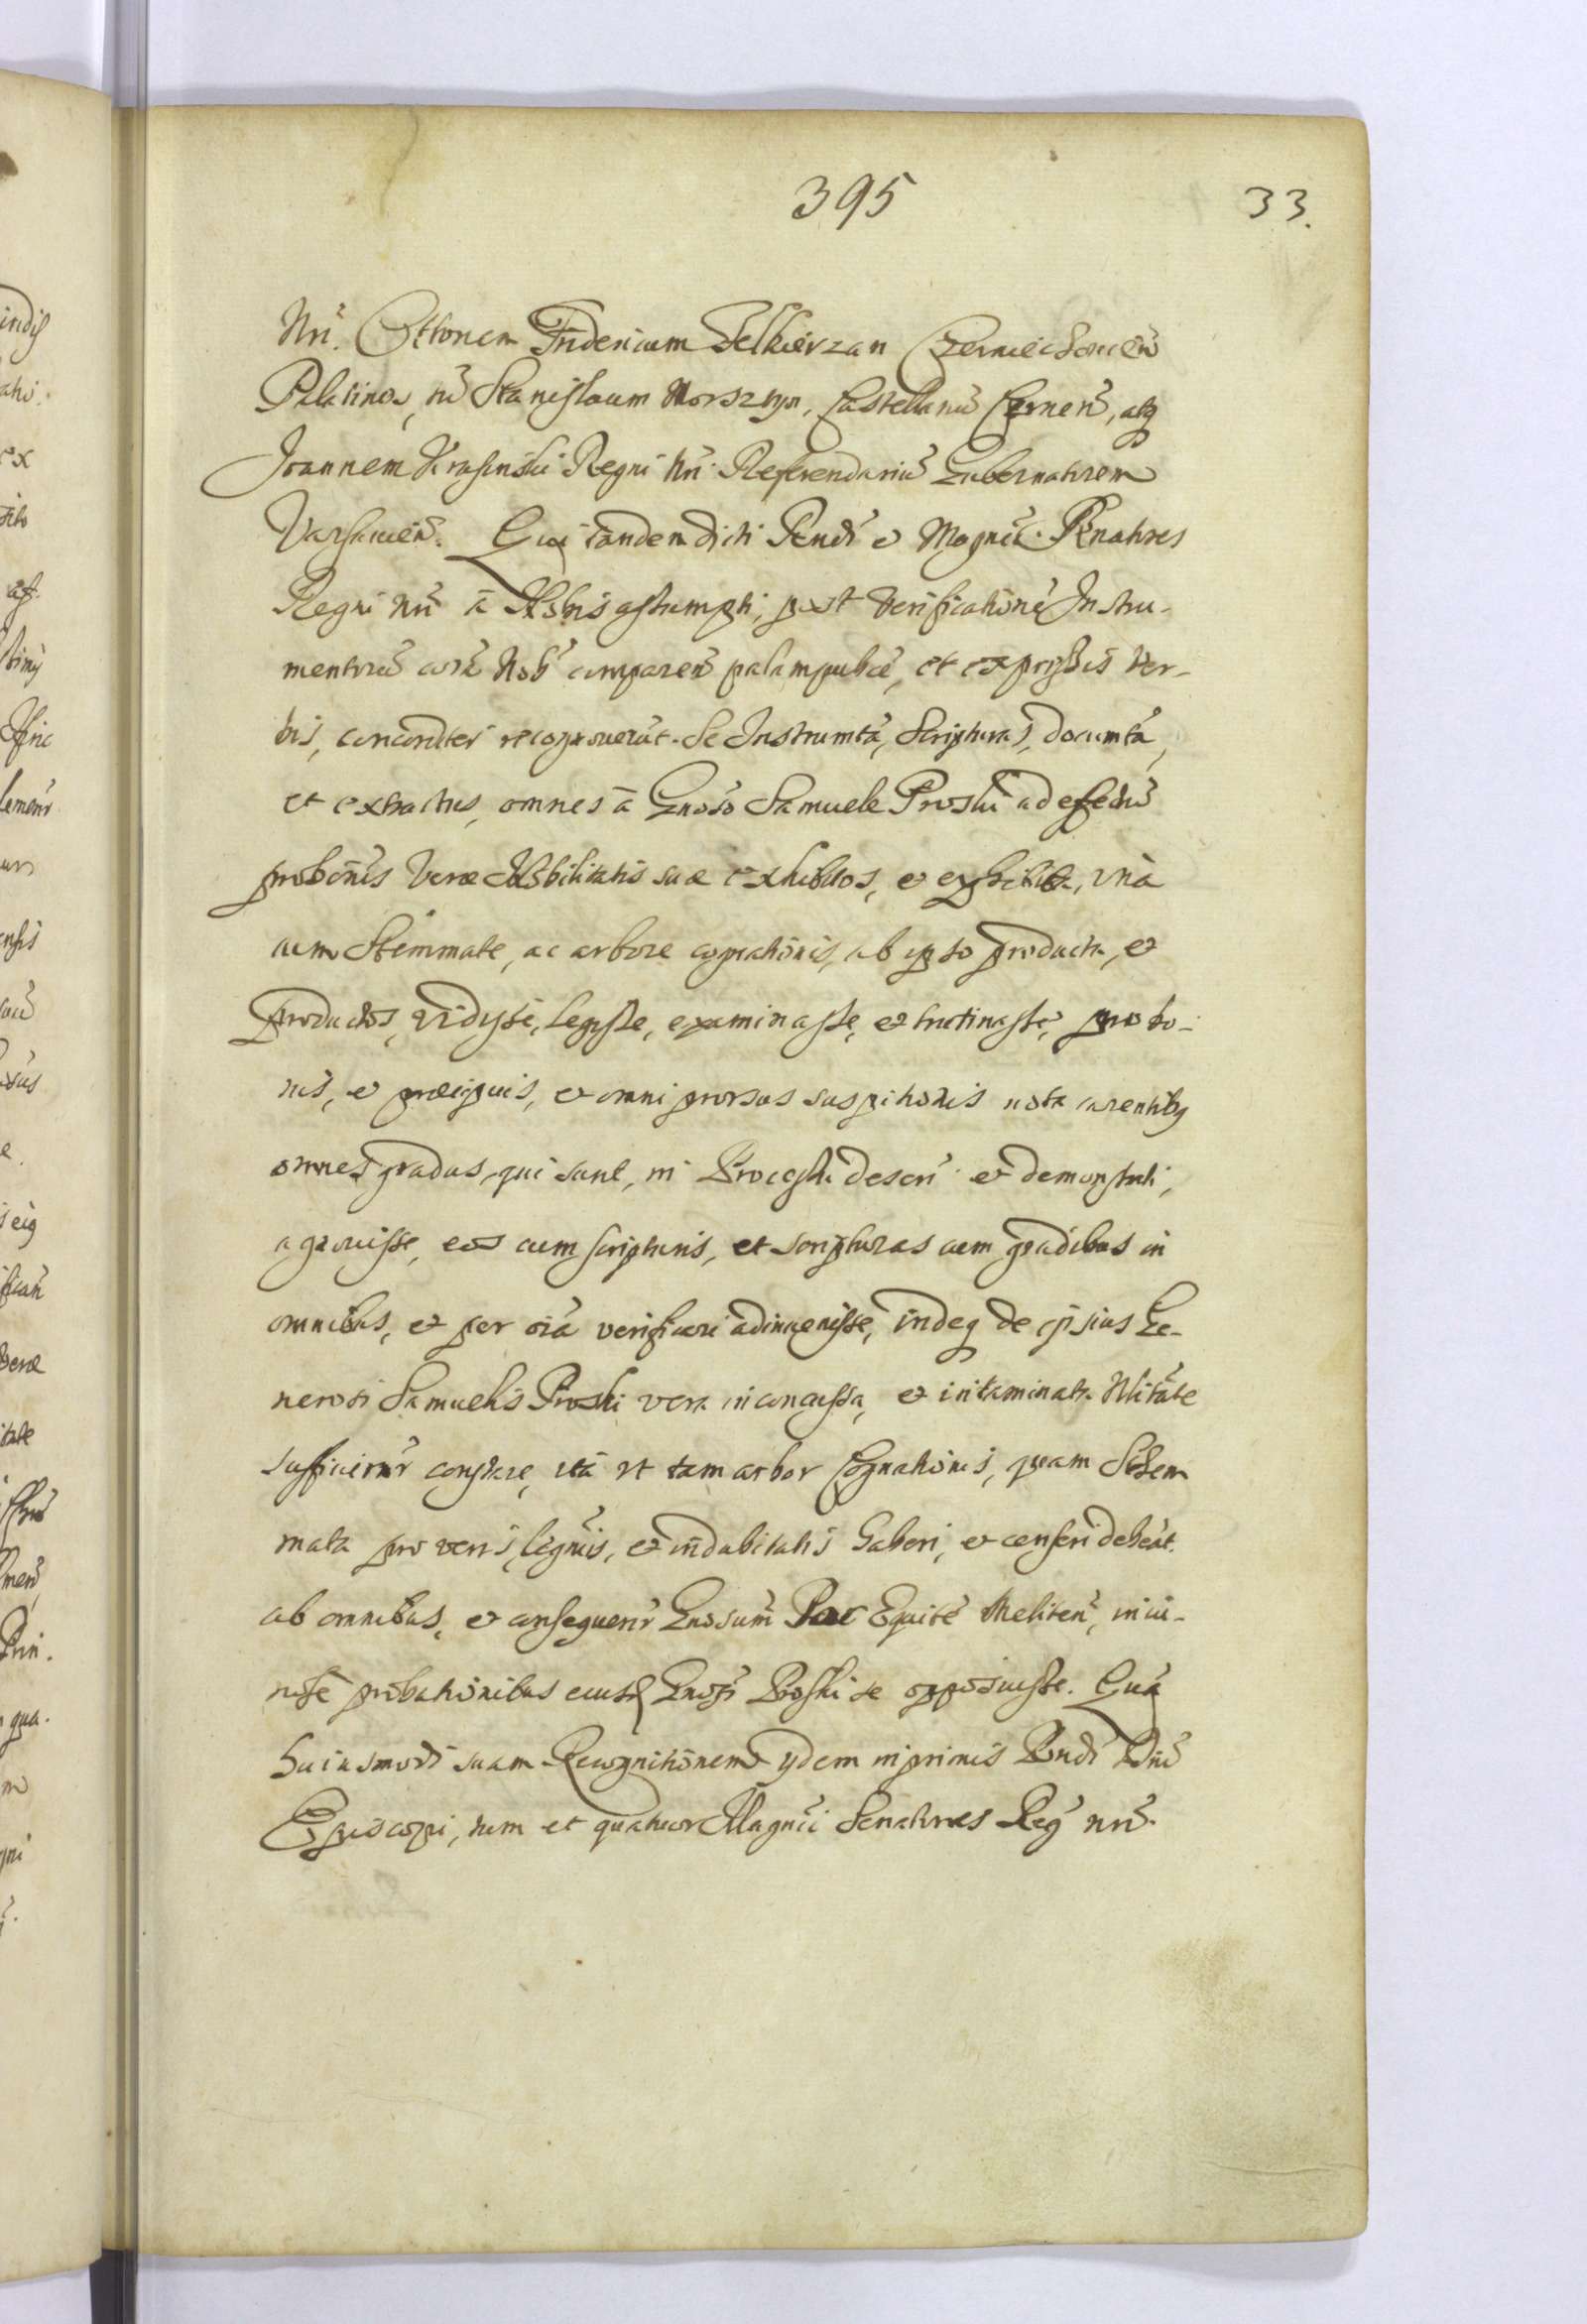 395
33.
Nri. Ottonem Fridericum Felkierzan Czerniechouien̄
Pllatinos, tū Stanislaum Morsztyn, Castellanū Czernen̄, atq
Joannem Krasinski Regni Nri. Referendariū Gubernatorem
Varsauien̄. Qui tandem dicti Rendi et Magnci. Senatores
Regni Nri ā Nobis assumpti, post verificationē Instru-
mentorū corā Nob̄ comparen̄ palam publce, et expressis ver-
bis, concorditer recognouerūt. Se Instrumta, Scripturas, documta,
et extractus, omnes ā Gnoso Samuele Proski ad effectū
probōnis Veræ Nobilitatis suæ exhibitos, et exhibita, vnà
cum Stemmate, ac arbore cognationis, ab ipso producta, et
productos, vidisse, legisse, examinasse, et trutinasse, pro bo-
nis, et præcipuis, et omni prorsus suspitionis nota carentibq
omnes gradus, qui sunt, in Processu descri. et demonstrati,
agnouisse, eos cum scripturis, et scripturas cum gradibus in
omnibus, et per oīa verificari adinuenisse, indeq de ipsius Ge-
nerosi Samuelis Proski vera inconcussa, et intaminata Nlitāte
sufficientr constare, ità vt tam arbor Cognationis, quam Schem
mata pro veris, legmis, et indubitatis haberi, et censeri debeāt.
ab omnibus, et consequenr Gnosum Pac Equitē Meliten̄, iniu-
ste probationibus eiusd Gnosi Proski se opposuisse. Quā
huiusmodi suam Recognitionem ijdem inprimis Rndi Dni
Episcopi, tum et quatuor Magnci Senatores Reg nri.